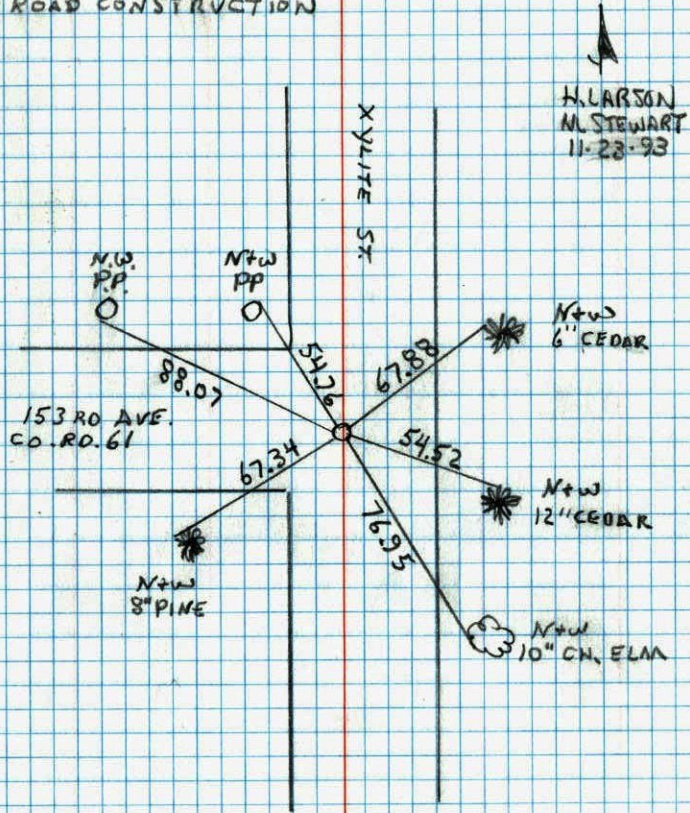 ROAD CONSTRUCTION
H. LARSON
M. STEWART
11-23-93
XYLITE ST.
N.W.
P.P.
N+W
PP
N+W
6" CEDAR
54.76
67.88
88.07
153 RD AVE.
CO. RD. 61
67.34
54.52
N+W
12" CEDAR
76.95
N+W
8" PINE
N+W
10" CH. ELM